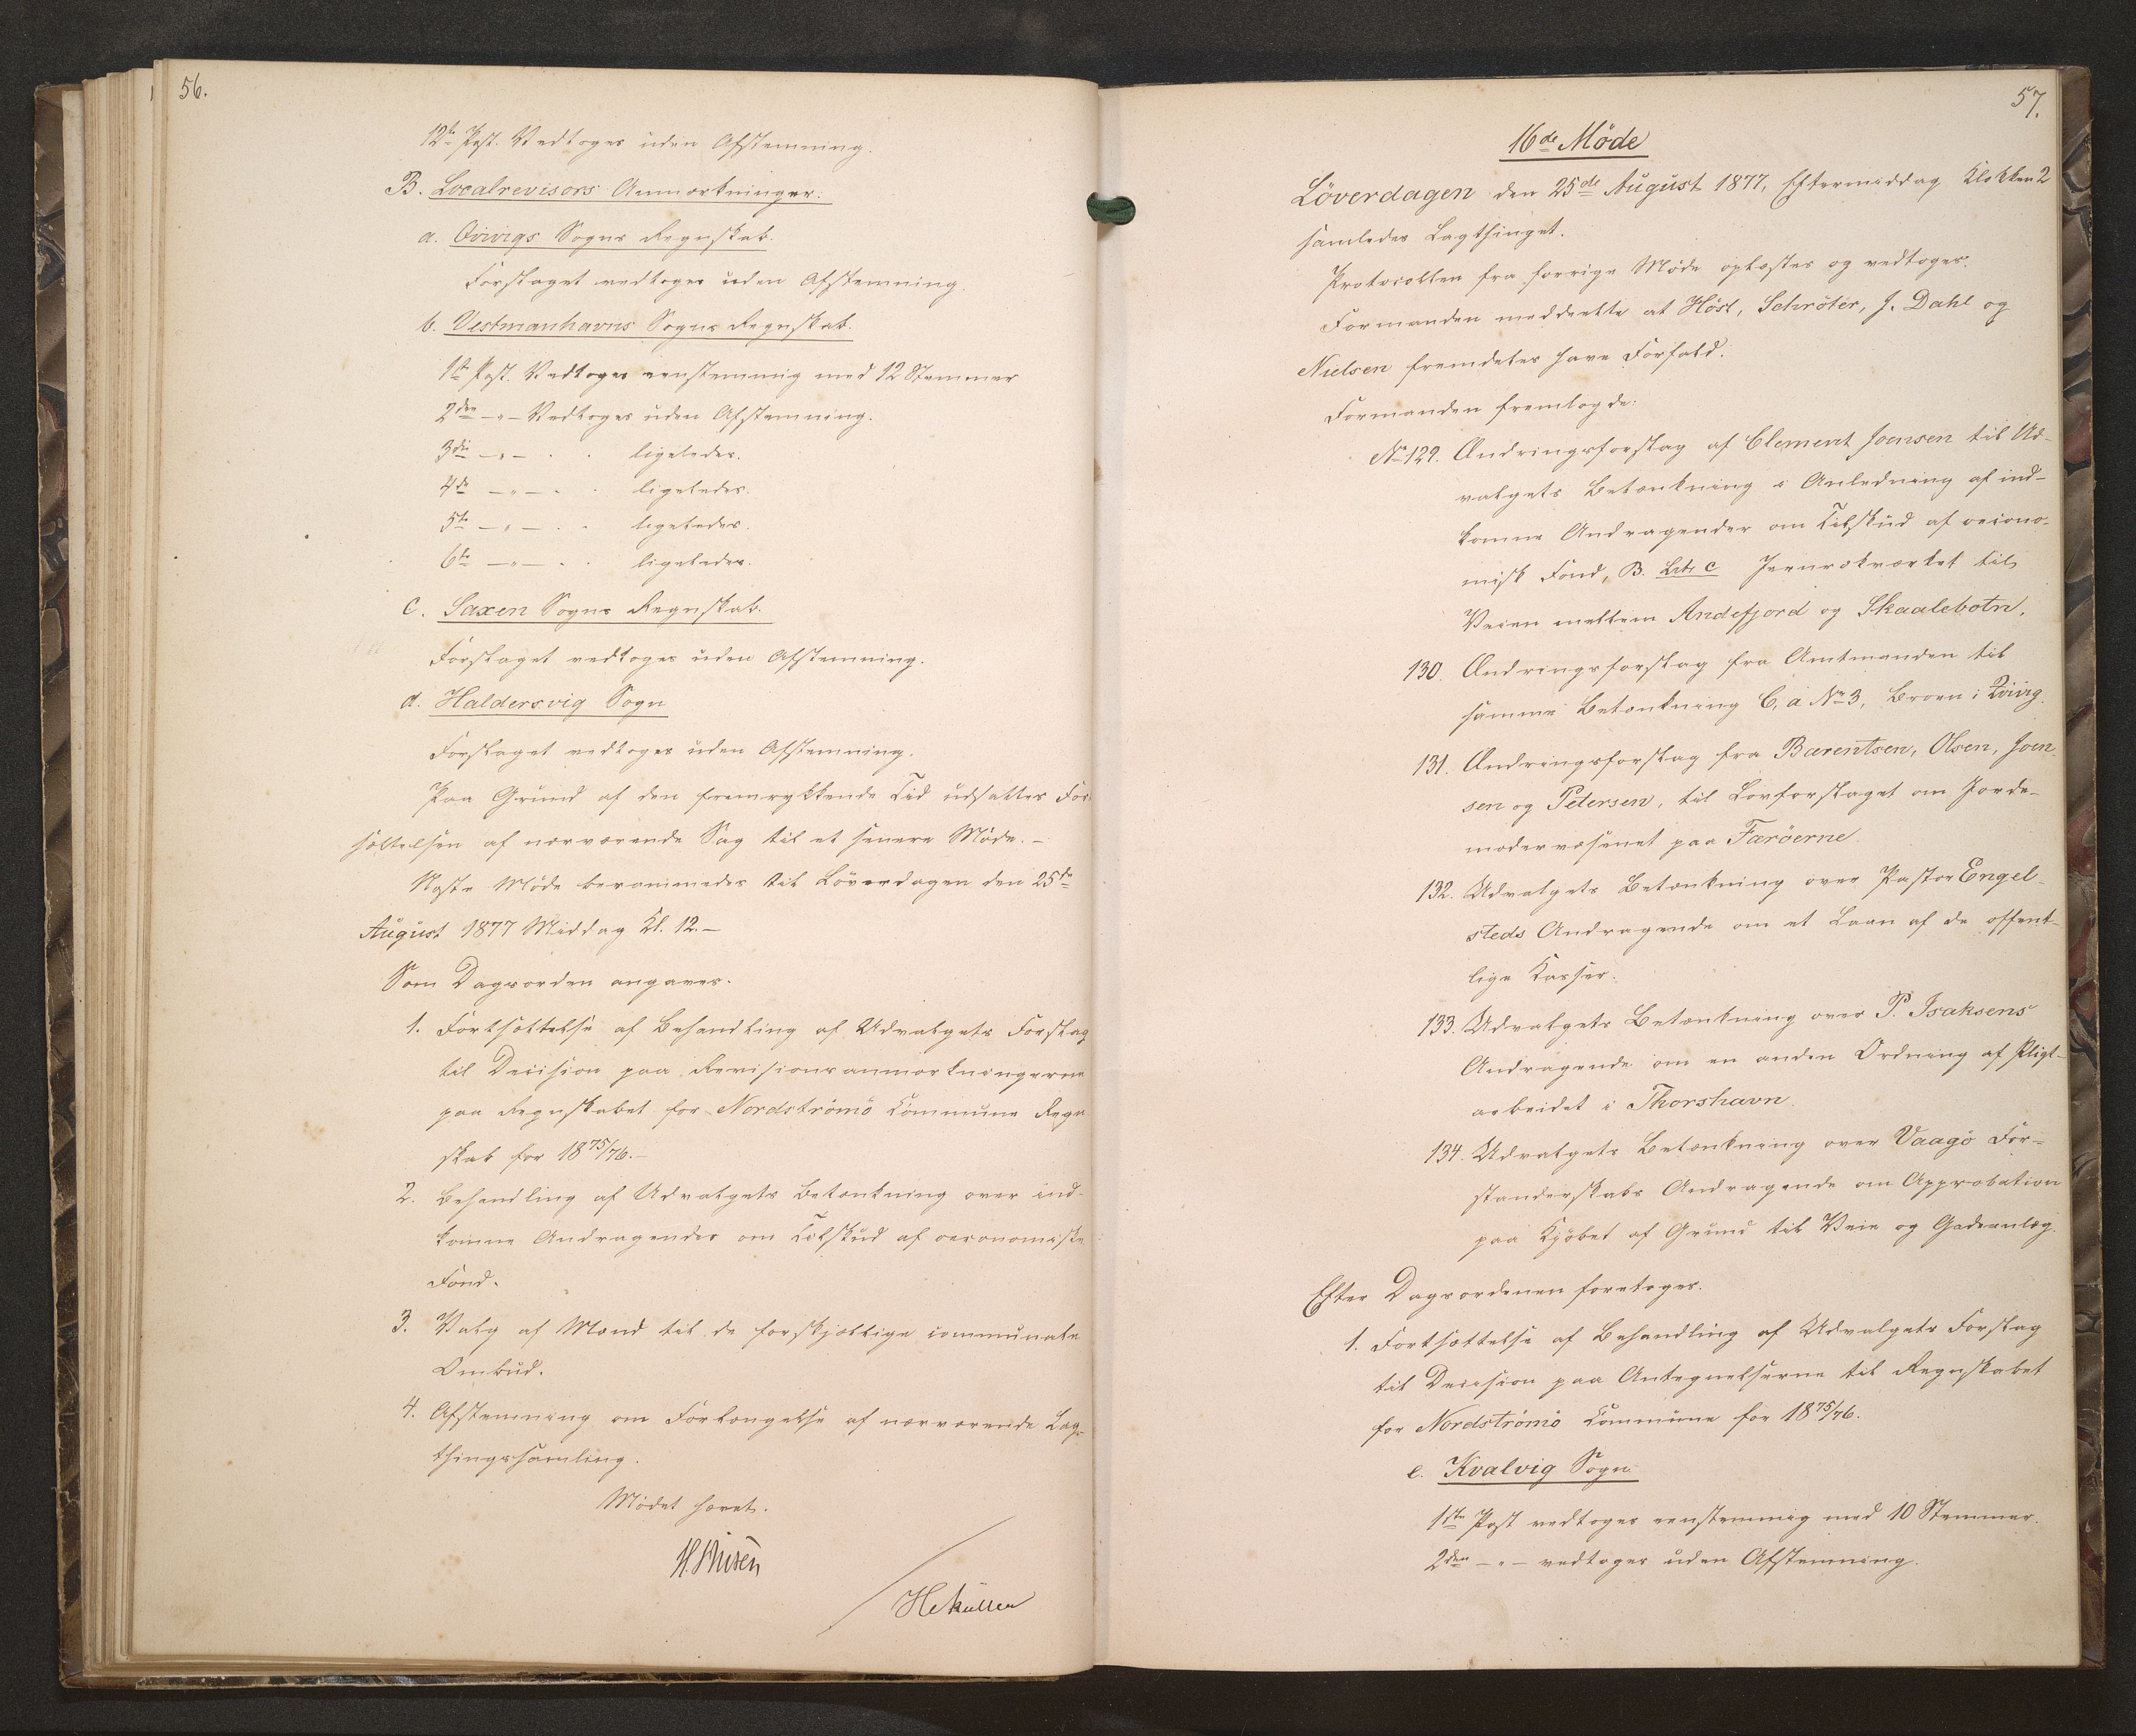 56.
12te Post. Vedtoges uden Afstemning.
B. Localrevisors Anmærkninger:
a. Qvivigs Sogns Regnskab.
Forslaget vedtoges uden Afstemning.
b. Vestmanhavns Sogns Regnskab.
1ste Post. Vedtoges eenstemmig med 12 Stemmer
2den -"- Vedtoges uden Afstemning.
3die -"- . . ligeledes.
4de -"- . . ligeledes.
5te -"- . . ligeledes.
6te -"- . . ligeledes.
c. Saxen Sogns Regnskab.
Forslaget vedtoges uden Afstemning.
d. Haldersvig Sogn
Forslaget vedtoges uden Afstemning.
Paa Grund af den fremrykkende Tid udsattes For
sættelsen af nærværende Sag til et senere Møde. –
Næste Møde berammedes til Löverdagen den 25de
August 1877 Middag Kl. 12. –
Som Dagsorden angaves.
1. Fortsættelse af Behandling af Udvalgets Forslag
til Decision paa Revisionsanmærkningerne
paa Regnskabet for Nordströmö Commune Regn
skab for 1875/76. –
2. Behandling af Udvalgets Betænkning over ind-
komne Andragender om Tilskud af oeconomiske
Fond.
3. Valg af Mænd til de forskjællige communale
Ombud.
4. Afstemning om Forlængelse af nærværende Lag-
thingssamling.
Mødet hævet.
H. Müller
57.
16de Möde
Löverdagen den 25de August 1877, Eftermiddag Klokken 2
samledes Lagthinget.
Protocollen fra forrige Møde oplæstes og vedtoges.
Formanden meddeelte at Höst, Schröter, J. Dahl og
Nielsen fremdeles have Forfald.
Formanden fremlagde:
No 129. Ændringsforslag af Clement Joensen til Ud-
valgets Betænkning i Anledning af ind-
komne Andragender om Tilskud af oecono-
misk Fond, B. Litr. C Jernrækværket til
Veien mellem Andefjord og Skaalebotn.
130. Ændringsforslag fra Amtmanden til
samme Betænkning C, a No 3, Broen i Qvivig.
131. Ændringsforslag fra Bærentsen, Olsen, Joen
sen og Petersen, til Lovforslaget om Jorde-
modervæsenet paa Færöerne.
132. Udvalgets Betænkning over Pastor Engel-
steds Andragende om et Laan af de offent-
lige Kasser.
133. Udvalgets Betænkning over P. Isaksens
Andragende om en anden Ordning af Pligt-
arbeidet i Thorshavn.
134. Udvalgets Betænkning over Vaagö For-
standerskabs Andragende om Approbation
paa Kjøbet af Grund til Veie og Gadeanlæg.
Efter Dagsordenen foretoges.
1. Fortsættelse af Behandling af Udvalgets Forslag
til Decision paa Antegnelserne til Regnskabet
for Nordströmö Commune for 1875/76.
e. Kvalvig Sogn
1ste Post vedtoges eenstemmig med 10 Stemmer.
2den -"- vedtoges uden Afstemning.